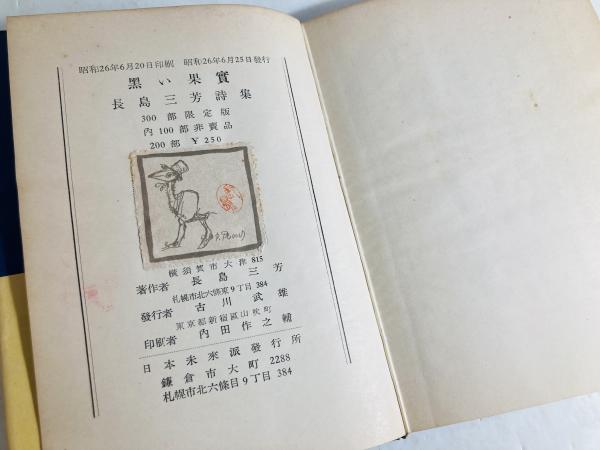 昭和26年6月20日印刷 昭和26年6月25日發行
黑い果實
長島三芳詩集
300部限定版
內100部非賣品
200部 ¥250
橫須賀市大津815
著作者 長島三芳
札幌市北六條東9丁目384
發行者 古川武雄
東京都新宿區山吹町
印刷者 內田作之輔
日本未來派發行所
鎌倉市大町2288
札幌市北六條目9丁目384